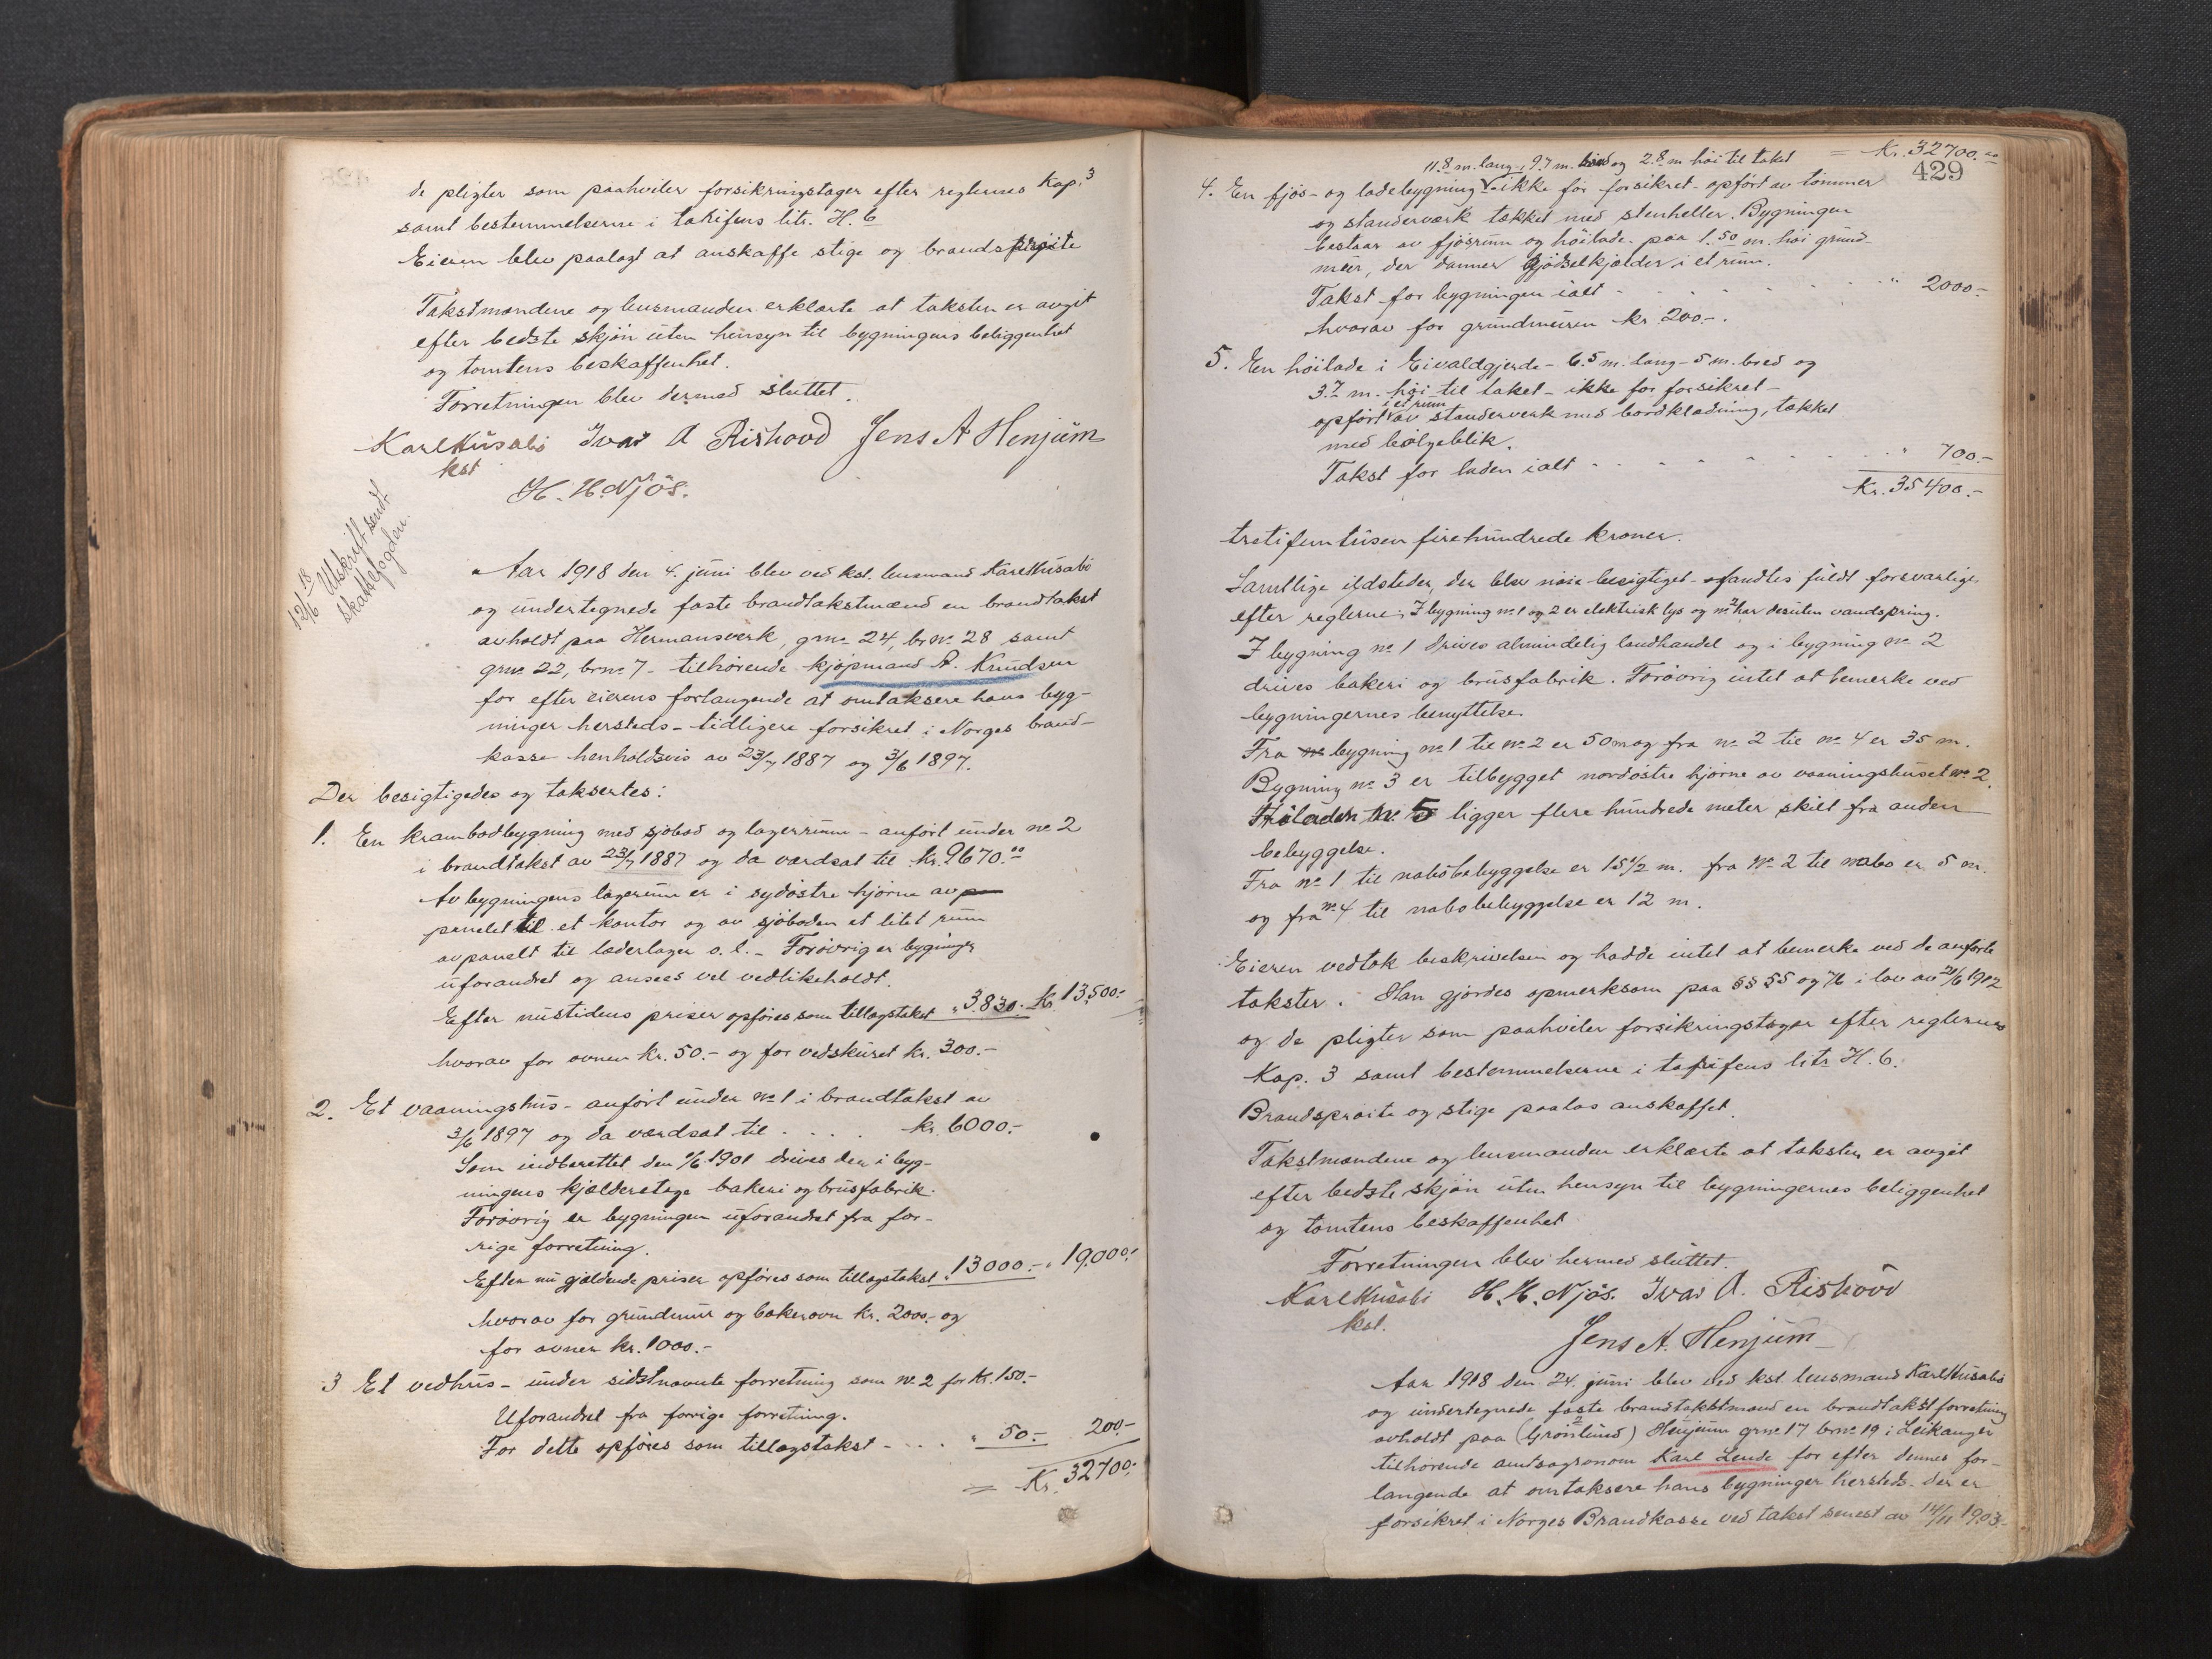 de pligter som paahviler forsikringstager efter reglernes Kap. 3
samt bestemmelserne i tarifens litr. H. 6
Eieren blev paalagt at anskaffe stige og brandsprøite
Takstmændene og lensmanden erklærte at taksten er avgit
efter bedste skjøn uten hensyn til bygningens beliggenhet
og tomtens beskaffenhet.
Forretningen blev dermed sluttet.
Karl Husabø Ivar A Rishovd Jens A Henjum
kst
H. H. Njøs.
12/6 18 Utskrift sendt
skattefogden.
Aar 1918 den 4. juni blev ved kst. lensmand Karl Husabø
og undertegnede faste brandtakstmænd en brandtakst
avholdt paa Hermansverk, grno 24, brno 28 samt
grno 22, brno 7 - tilhørende kjøpmand A. Knudsen
for efter eierens forlangende at omtaksere hans byg-
ninger hersteds - tidligere forsikret i Norges brand-
kasse henholdsvis av 23/7 1887 og 3/6 1897.
Der besigtigedes og taksertes:
1. En krambodbygning med sjøbod og lagerrum - anført under no 2
i brandtakst av 23/7 1887 og da værdsat til kr. 9670.00
Av bygningens lagerrum er i sydøstre hjørne av
panelet til et kontor og av sjøboden et litet rum
avpanelt til læderlager o. l. - Forøvrig er bygningen
uforandret og ansees vel vedlikeholdt.
Efter nutidens priser opføres som tillægstakst " 3.830.- Kr. 13,500.-
hvorav for ovnen kr. 50.- og for vedskuret kr. 300.-
2. Et vaaningshus - anført under no 1 i brandtakst av
3/6 1897 og da værdsat til . . . . kr. 6000.-
Som indberettet den 1/6 1901 drives der i byg-
ningens kjælderetage bakeri og brusfabrik.
Forøvrig er bygningen uforandret fra for-
rige forretning.
Efter nu gjældende priser opføres som tillægstakst " 13000.- " 19,000.-
hvorav for grundmur og bakerovn kr. 2000.- og
for ovner kr. 1000.-
3 Et vedhus - under sidstnævnte forretning som no. 2 for kr. 150.-
Uforandret fra forrige forretning.
For dette opføres som tillægstakst - . . . . " 50.- 200.-
= Kr. 32700.-
= Kr. 32700.00
429
11.8 m. lang - 9.7 m. bred og 2.8 m høi til taket
4. En fjøs- og ladebygning - ikke før forsikret - opført av tømmer
og standerværk tækket med stenheller. Bygningen
bestaar av fjøsrum og høilade. paa 1.50 m. høi grund-
muer, der danner gjødselkjælder i et rum.
Takst for bygningen ialt - - - - - " 2000.-
hvorav for grundmuren kr. 200.-.
5. En høilade i Eivaldgjerde - 6.5 m. lang - 5 m. bred og
3.7 m. høi til taket - ikke før forsikret -
i et rum
opført av standerverk med bordklædning, tækket
med bølgeblik.
Takst for laden ialt - - - - - - " 700.-
Kr. 35400.-
trettifemtusen firehundrede kroner.
Samtlige ildsteder, der blev nøie besigtiget - fandtes fuldt forsvarlige
efter reglerne. I bygning no 1 og 2 er elektrisk lys og no 2 har desuten vandspring.
I bygning no 1 drives almindelig landhandel og i bygning no 2
drives bakeri og brusfabrik. Forøvrig intet at bemerke ved
bygningernes benyttelse.
Fra bygning no 1 til no 2 er 50 m og fra no 2 til no 4 er 35 m.
Bygning no 3 er tilbygget nordøstre hjørne av vaaningshuset no 2.
Høiladen no. 5 ligger flere hundrede meter skilt fra anden
bebyggelse.
Fra no 1 til nabobebyggelse er 15 1/2 m. fra no 2 til nabo er 5 m.
og fra no 4 til nabobebyggelse er 12 m.
Eieren vedtok beskrivelsen og hadde intet at bemerke ved de anførte
takster. Han gjordes opmerksom paa §§ 55 og 76 i lov av 21/6 1912
og de pligter som paahviler forsikringstager efter reglernes
Kap. 3 samt bestemmelserne i tarifens litr H. 6.
Brandsprøite og stige paalas anskaffet.
Takstmændene og lensmanden erklærte at taksten er avgit
efter bedste skjøn uten hensyn til bygningernes beliggenhet
og tomtens beskaffenhet
Forretningen blev hermed sluttet.
Karl Husabø H. H. Njøs. Ivar A. Rishovd
kst.
Jens A. Henjum
Aar 1918 den 24. juni blev ved kst lensmand Karl Husabø
og undertegnede faste brandtakstmænd en brandtakstforretning
avholdt paa (Grønlund) Henjum grno 17 brno 19 i Leikanger
tilhørende amtsagronom Karl Lende for efter dennes for-
langende at omtaksere hans bygninger hersteds - der er
forsikret i Norges Brandkasse ved takst senest av 14/11 1903.-